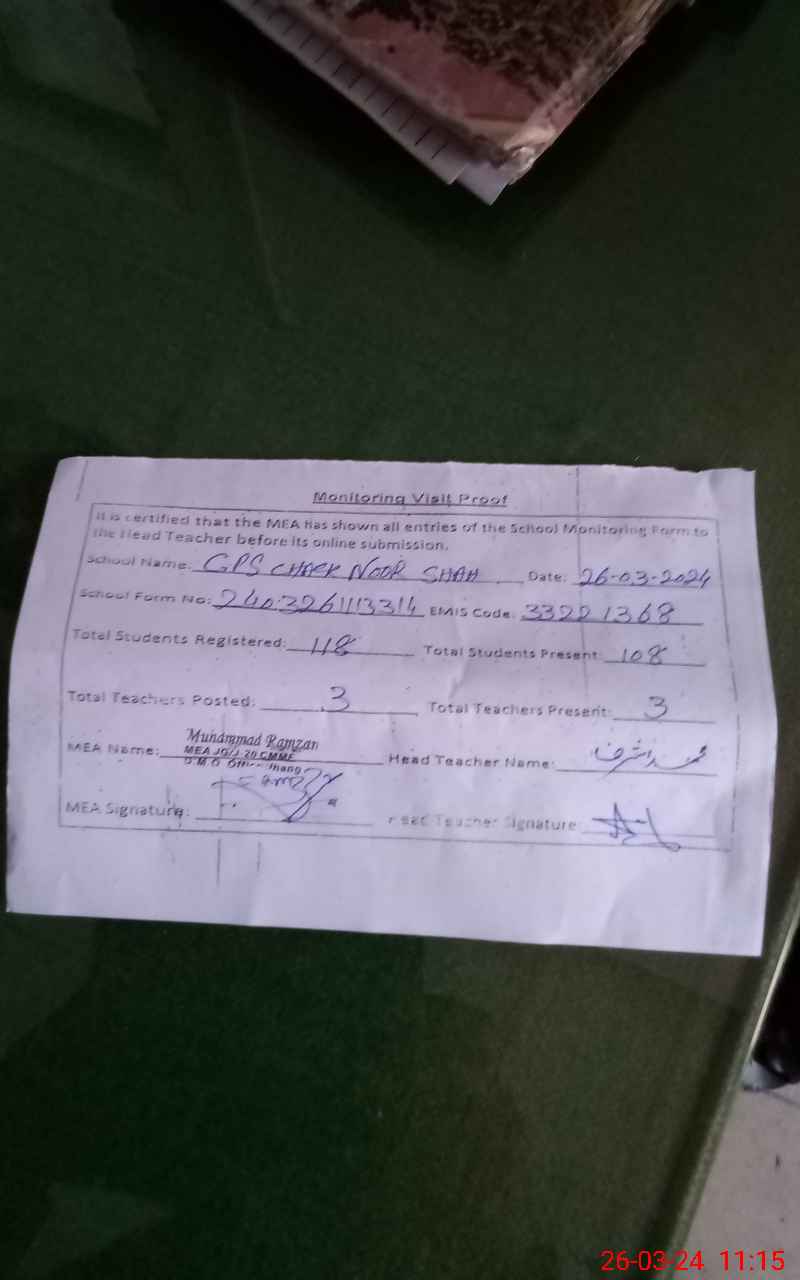 Monitoring Visit Proof
It is certified that the MEA has shown all entries of the School Monitoring Form to
the Head Teacher before its online submission.
School Name: GPS CHAK NOOR SHAH Date: 26-03-2024
School Form No: 2403261113314 EMIS Code: 33221368
Total Students Registered: 118 Total Students Present: 108
Total Teachers Posted: 3 Total Teachers Present: 3
Muhammad Ramzan
MEA Name: MEA Head Teacher Name: محمد اشرف
MEA Signature: Head Teacher Signature:
26-03-24 11:15